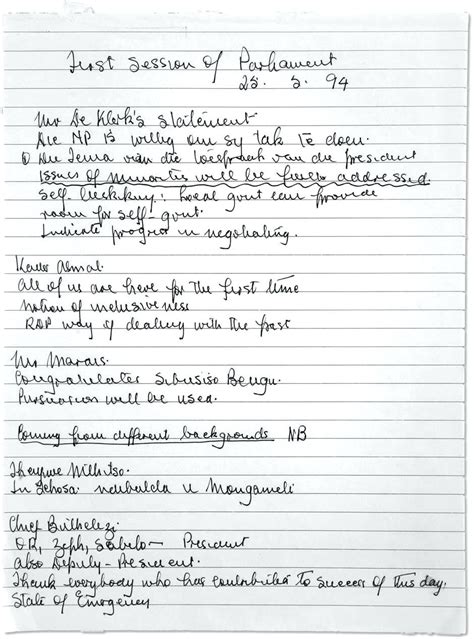 First Session of Parliament
25. 5. 94
Mr De Klerk's statement
Die NP is willig om sy tak te doen.
① Die Tema van die toespraak van die president
Issues of minorities will be fully addressed
Self- : Local govt can provide
room for self-govt.
Indicate progress in negotiating.
Kader Asmal.
All of us are here for the first time
Notion of inclusiveness
RDP way of dealing with the past
Mr Marais.
Congratulates Sibusiso Bengu.
Persuasion will be used.
Coming from different backgrounds NB
In Xhosa u Mongameli
Chief Buthelezi
OR, Zeph, Sabelo — President
Also Deputy-President.
Thank everybody who has contributed to success of this day.
State of Emergency